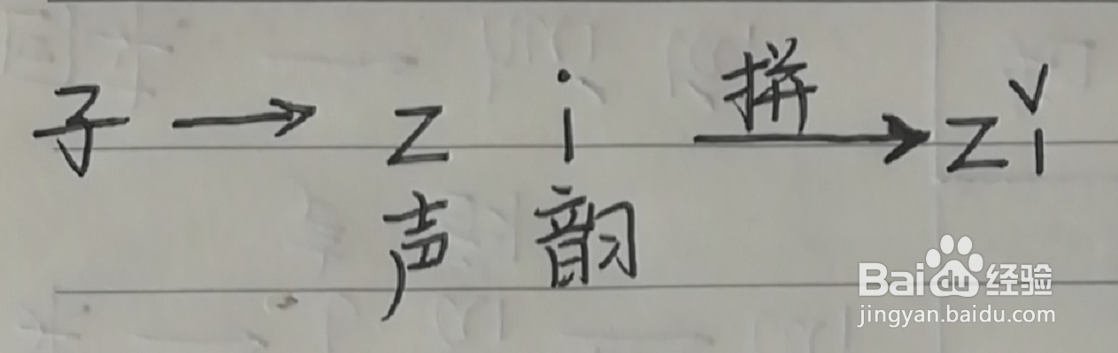 子 → z i 拼 → zǐ
声 韵
Baidu 经验
jingyan.baidu.com